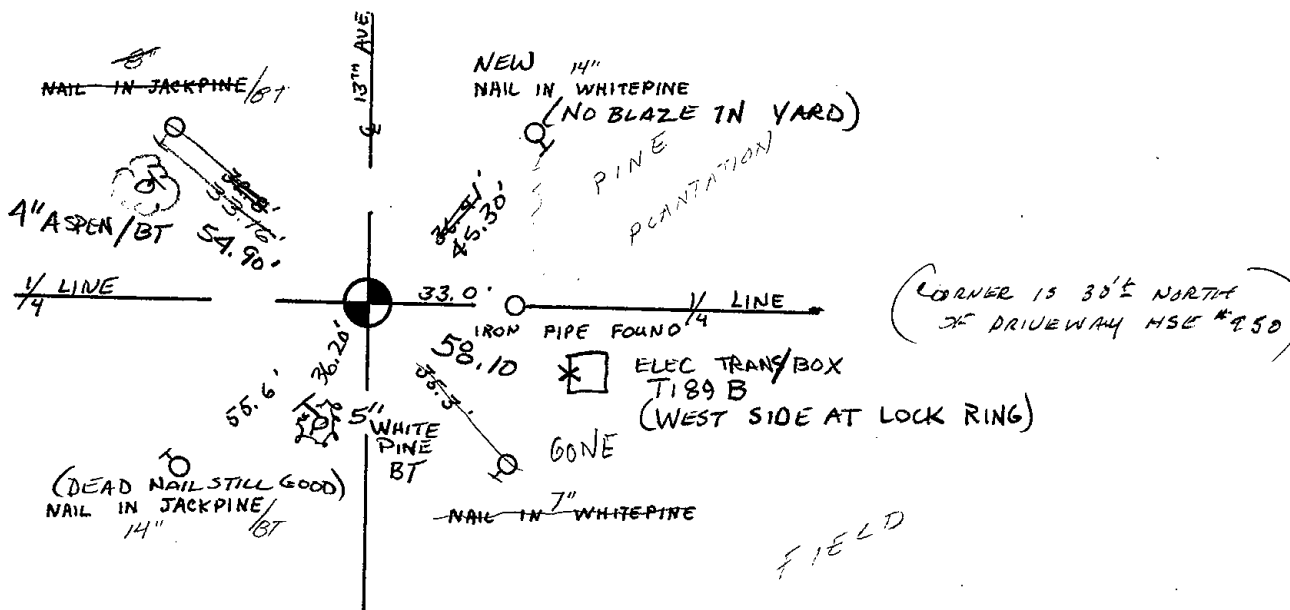 8"
NAIL IN JACKPINE/BT
13TH AVE.
℄
NEW 14"
NAIL IN WHITEPINE
(NO BLAZE IN YARD)
PINE
PLANTATION
4" ASPEN/BT
33.16'
54.90'
36.91'
45.30'
1/4 LINE
33.0'
1/4 LINE
IRON PIPE FOUND
(CORNER IS 30'± NORTH
OF DRIVEWAY HSE #950)
58.10
ELEC TRANS/BOX
T189 B
(WEST SIDE AT LOCK RING)
55.6'
36.20'
35.3'
5" WHITE
PINE
BT
GONE
(DEAD NAIL STILL GOOD)
NAIL IN JACKPINE/BT
14"
7"
NAIL IN WHITEPINE
FIELD